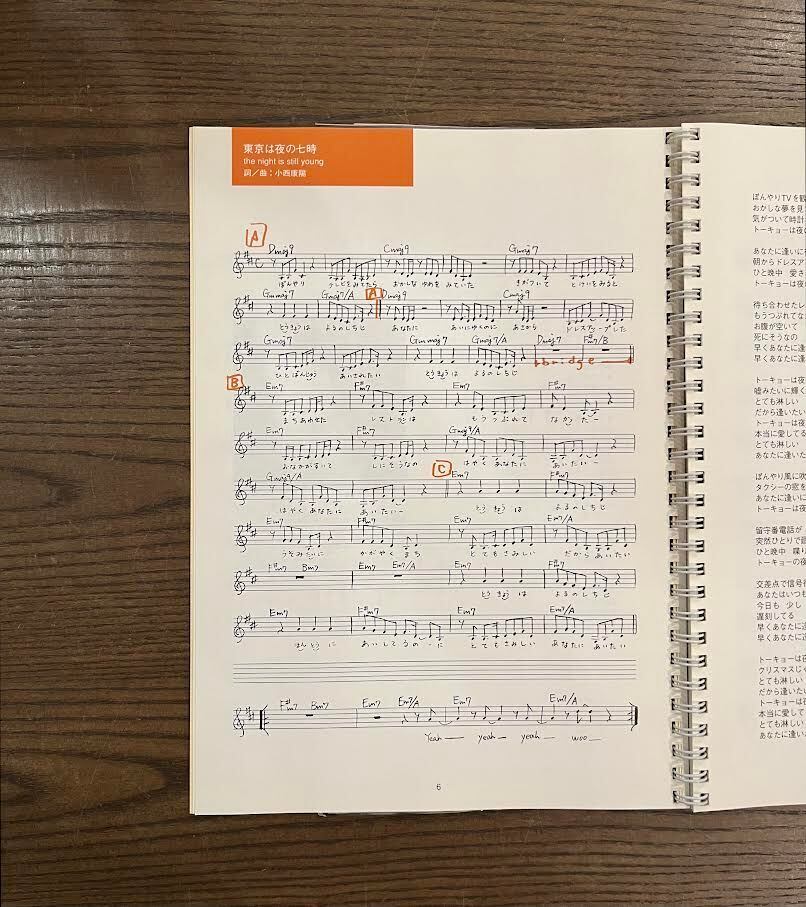 東京は夜の七時
the night is still young
詞／曲：小西康陽
A
Dmaj9 Cmaj9 Gmaj7
ぼんやり テレビをみてたら おかしな ゆめを みていた きがついて とけいをみると
Gmmaj7 Gmaj7/A A Dmaj9 Cmaj9
とうきょうは よるのしちじ あなたに あいにゆくのに あさから ドレスアップした
Gmaj7 Gmmaj7 Gmaj7/A Dmaj7 F#m7/B
ひとばんじゅう あいされたい とうきょうは よるのしちじ bridge
B
Em7 F#m7 Em7 F#m7
まちあわせた レストランは もうつぶれて なかった
Em7 F#m7 Gmaj9/A
おなかがすいて しにそうなの はやく あなたに あいたいー
Gmaj9/A C Em7 F#m7
はやく あなたに あいたいー とうきょうは よるのしちじ
Em7 F#m7 Em7 Em7/A
うそみたいに かがやく まち とてもさみしい だから あいたい
F#m7 Bm7 Em7 Em7/A Em7 F#m7
とうきょうは よるのしちじ
Em7 F#m7 Em7 Em7/A
ほんとうに あいしてるのーに とてもさみしい あなたに あいたい
F#m7 Bm7 Em7 Em7/A Em7 Em7/A
Yeah yeah yeah woo
6
ぼんやりTVを観
おかしな夢を見
気がついて時計
トーキョーは夜の
あなたに逢いに
朝からドレスア
ひと晩中 愛さ
トーキョーは夜
待ち合わせたレ
もうつぶれてな
お腹が空いて
死にそうなの
早くあなたに逢
早くあなたに逢
トーキョーは夜
嘘みたいに輝く
とても淋しい
だから逢いたい
トーキョーは夜
本当に愛してる
とても淋しい
あなたに逢いた
ぼんやり風に吹
タクシーの窓を
あなたに逢いに
トーキョーは夜
留守番電話が
突然ひとりで
ひと晩中 喋り
トーキョーの夜
交差点で信号
あなたはいつも
今日も 少し
遅刻してる
早くあなたに逢
早くあなたに逢
トーキョーは夜
クリスマスじ
とても淋しい
だから逢いたい
トーキョーは夜
本当に愛して
とても淋しい
あなたに逢い